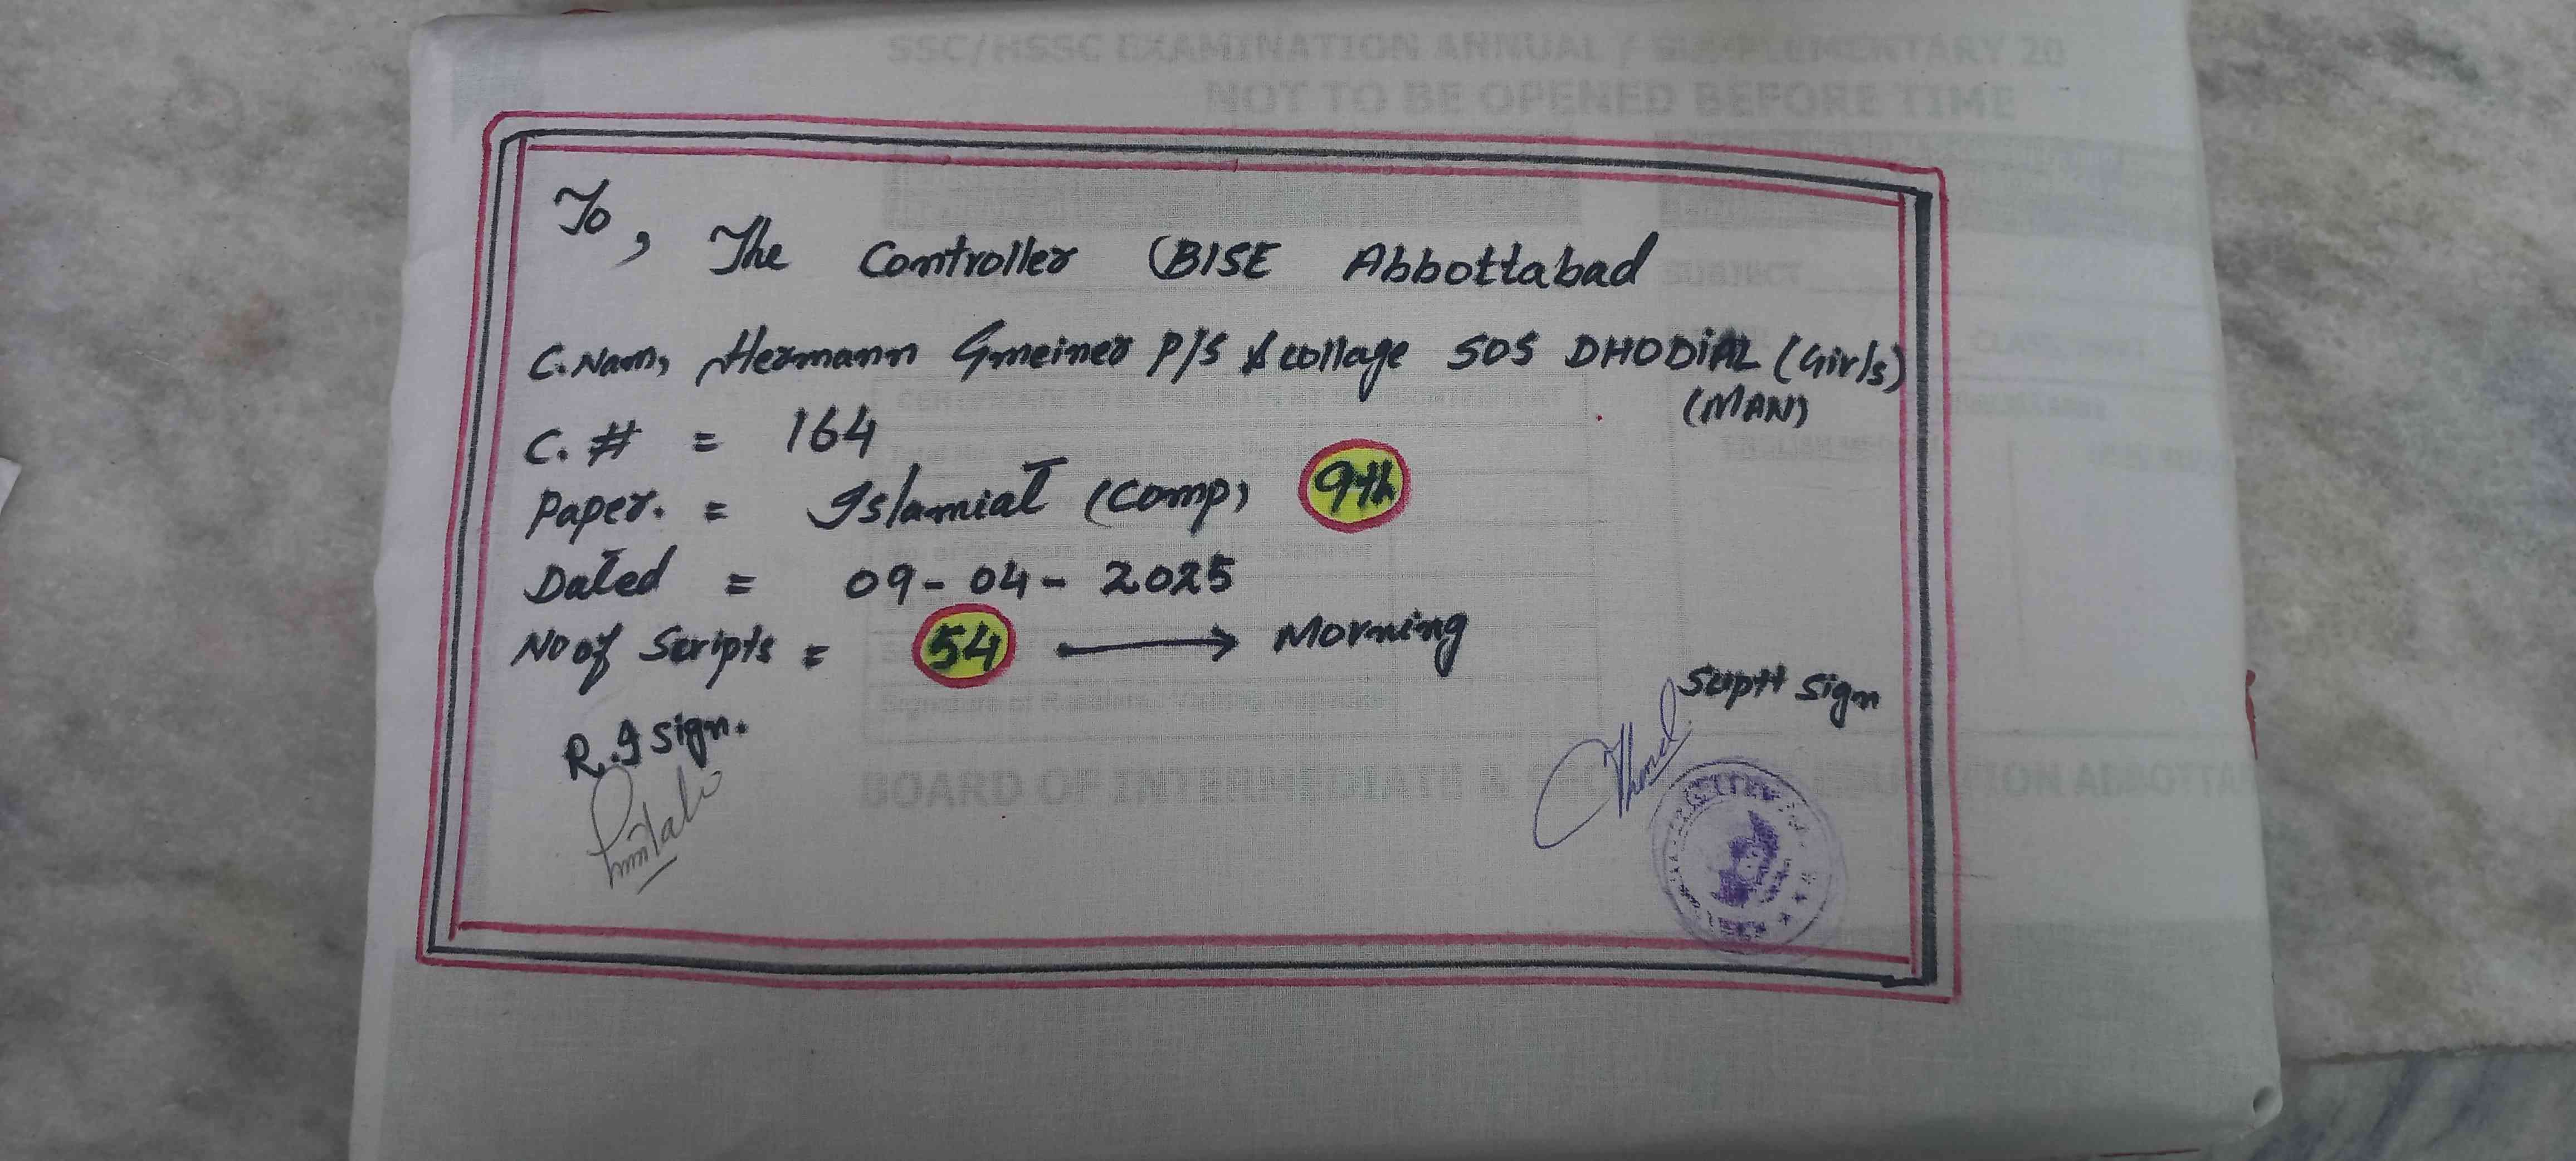 SSC/HSSC EXAMINATION ANNUAL / SUPPLEMENTARY 20
NOT TO BE OPENED BEFORE TIME
To,
The Controller BISE Abbottabad
C. Nam, Hermann Gmeiner P/S & collage SOS DHODiAL (Girls)
(MAN)
C. # = 164
Paper. = Islamiat (Comp) 9th
Dated = 09-04-2025
No of Scripts = 54 → Morning
Suptt Sign
R.I Sign.
SUBJECT
Signature of Resident / Visiting Inspector
BOARD OF INTERMEDIATE & SECONDARY EDUCATION ABBOTTA